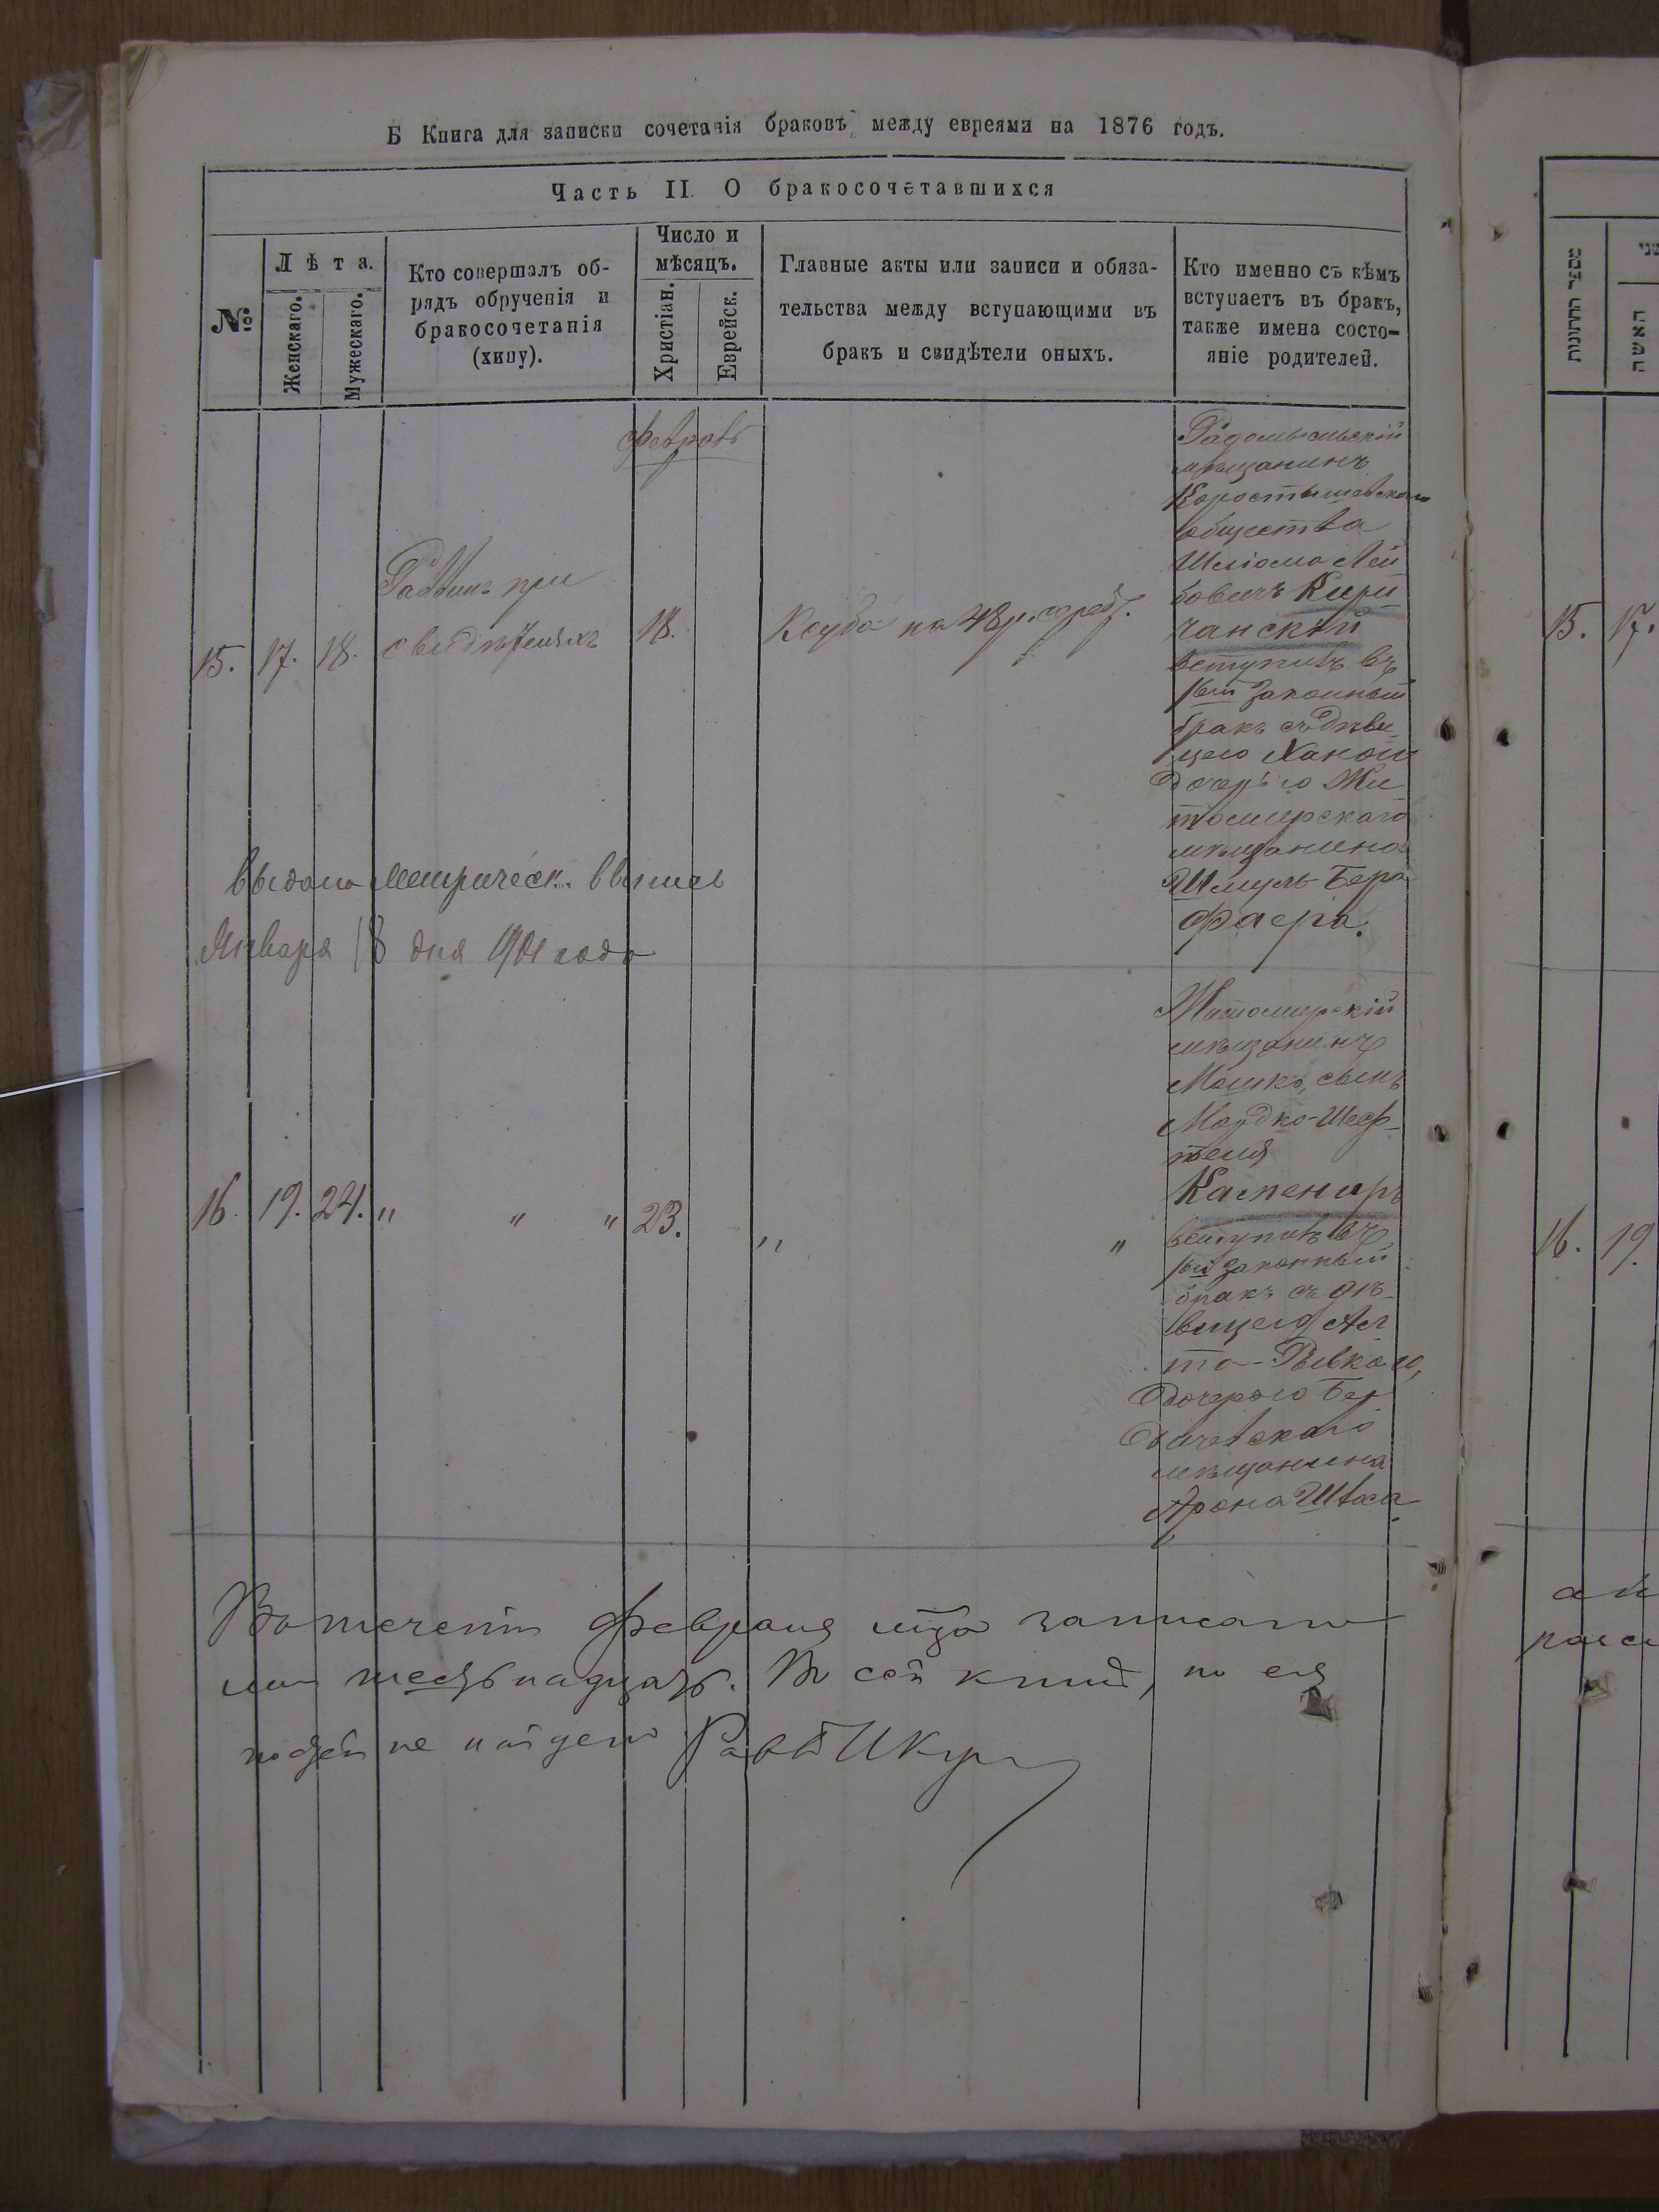 Б Книга для записки сочетанія браковъ между евреями на 1876 годъ.
Часть II. О бракосочетавшихся
№
Лѣта.
Женскаго.
Мужескаго.
Кто совершалъ об-
рядъ обрученія и
бракосочетанія
(хипу).
Число и
мѣсяцъ.
Христіан.
Еврейск.
Главные акты или записи и обяза-
тельства между вступающими въ
бракъ и свидѣтели оныхъ.
Кто именно съ кѣмъ
вступаетъ въ бракъ,
также имена состо-
яніе родителей.
Февраль
15. 17. 18.
Раввинъ при
свидѣтеляхъ
18.
Ксуба на 48 р. сереб.
Радомысльскій
мѣщанинъ
Коростышевскаго
общества
Шліома Лей
бовичъ Кири
чанскій
вступилъ въ
1ый законный
бракъ съ дѣви
цею Ханою
дочерью Жи
томирскаго
мѣщанина
Шмуль-Бера
Фаера.
Выдана метрическ. выпись
Января 18 дня 1901 года
16. 19. 24. " " " 23. " "
Житомирскій
мѣщанинъ
Мошко, сынъ
Мордко-Шеф-
теля
Камениръ
вступилъ въ
1ый законный
бракъ съ дѣ-
вицею Ал
та-Ривкою,
дочерью Бер
дичевскаго
мѣщанина
Арона Шваса
Въ теченіи февраля мца записано
шестьнадцать. Въ сей книгѣ,
не Равв
מספר החתונות
האשה
15. 17.
16. 19.